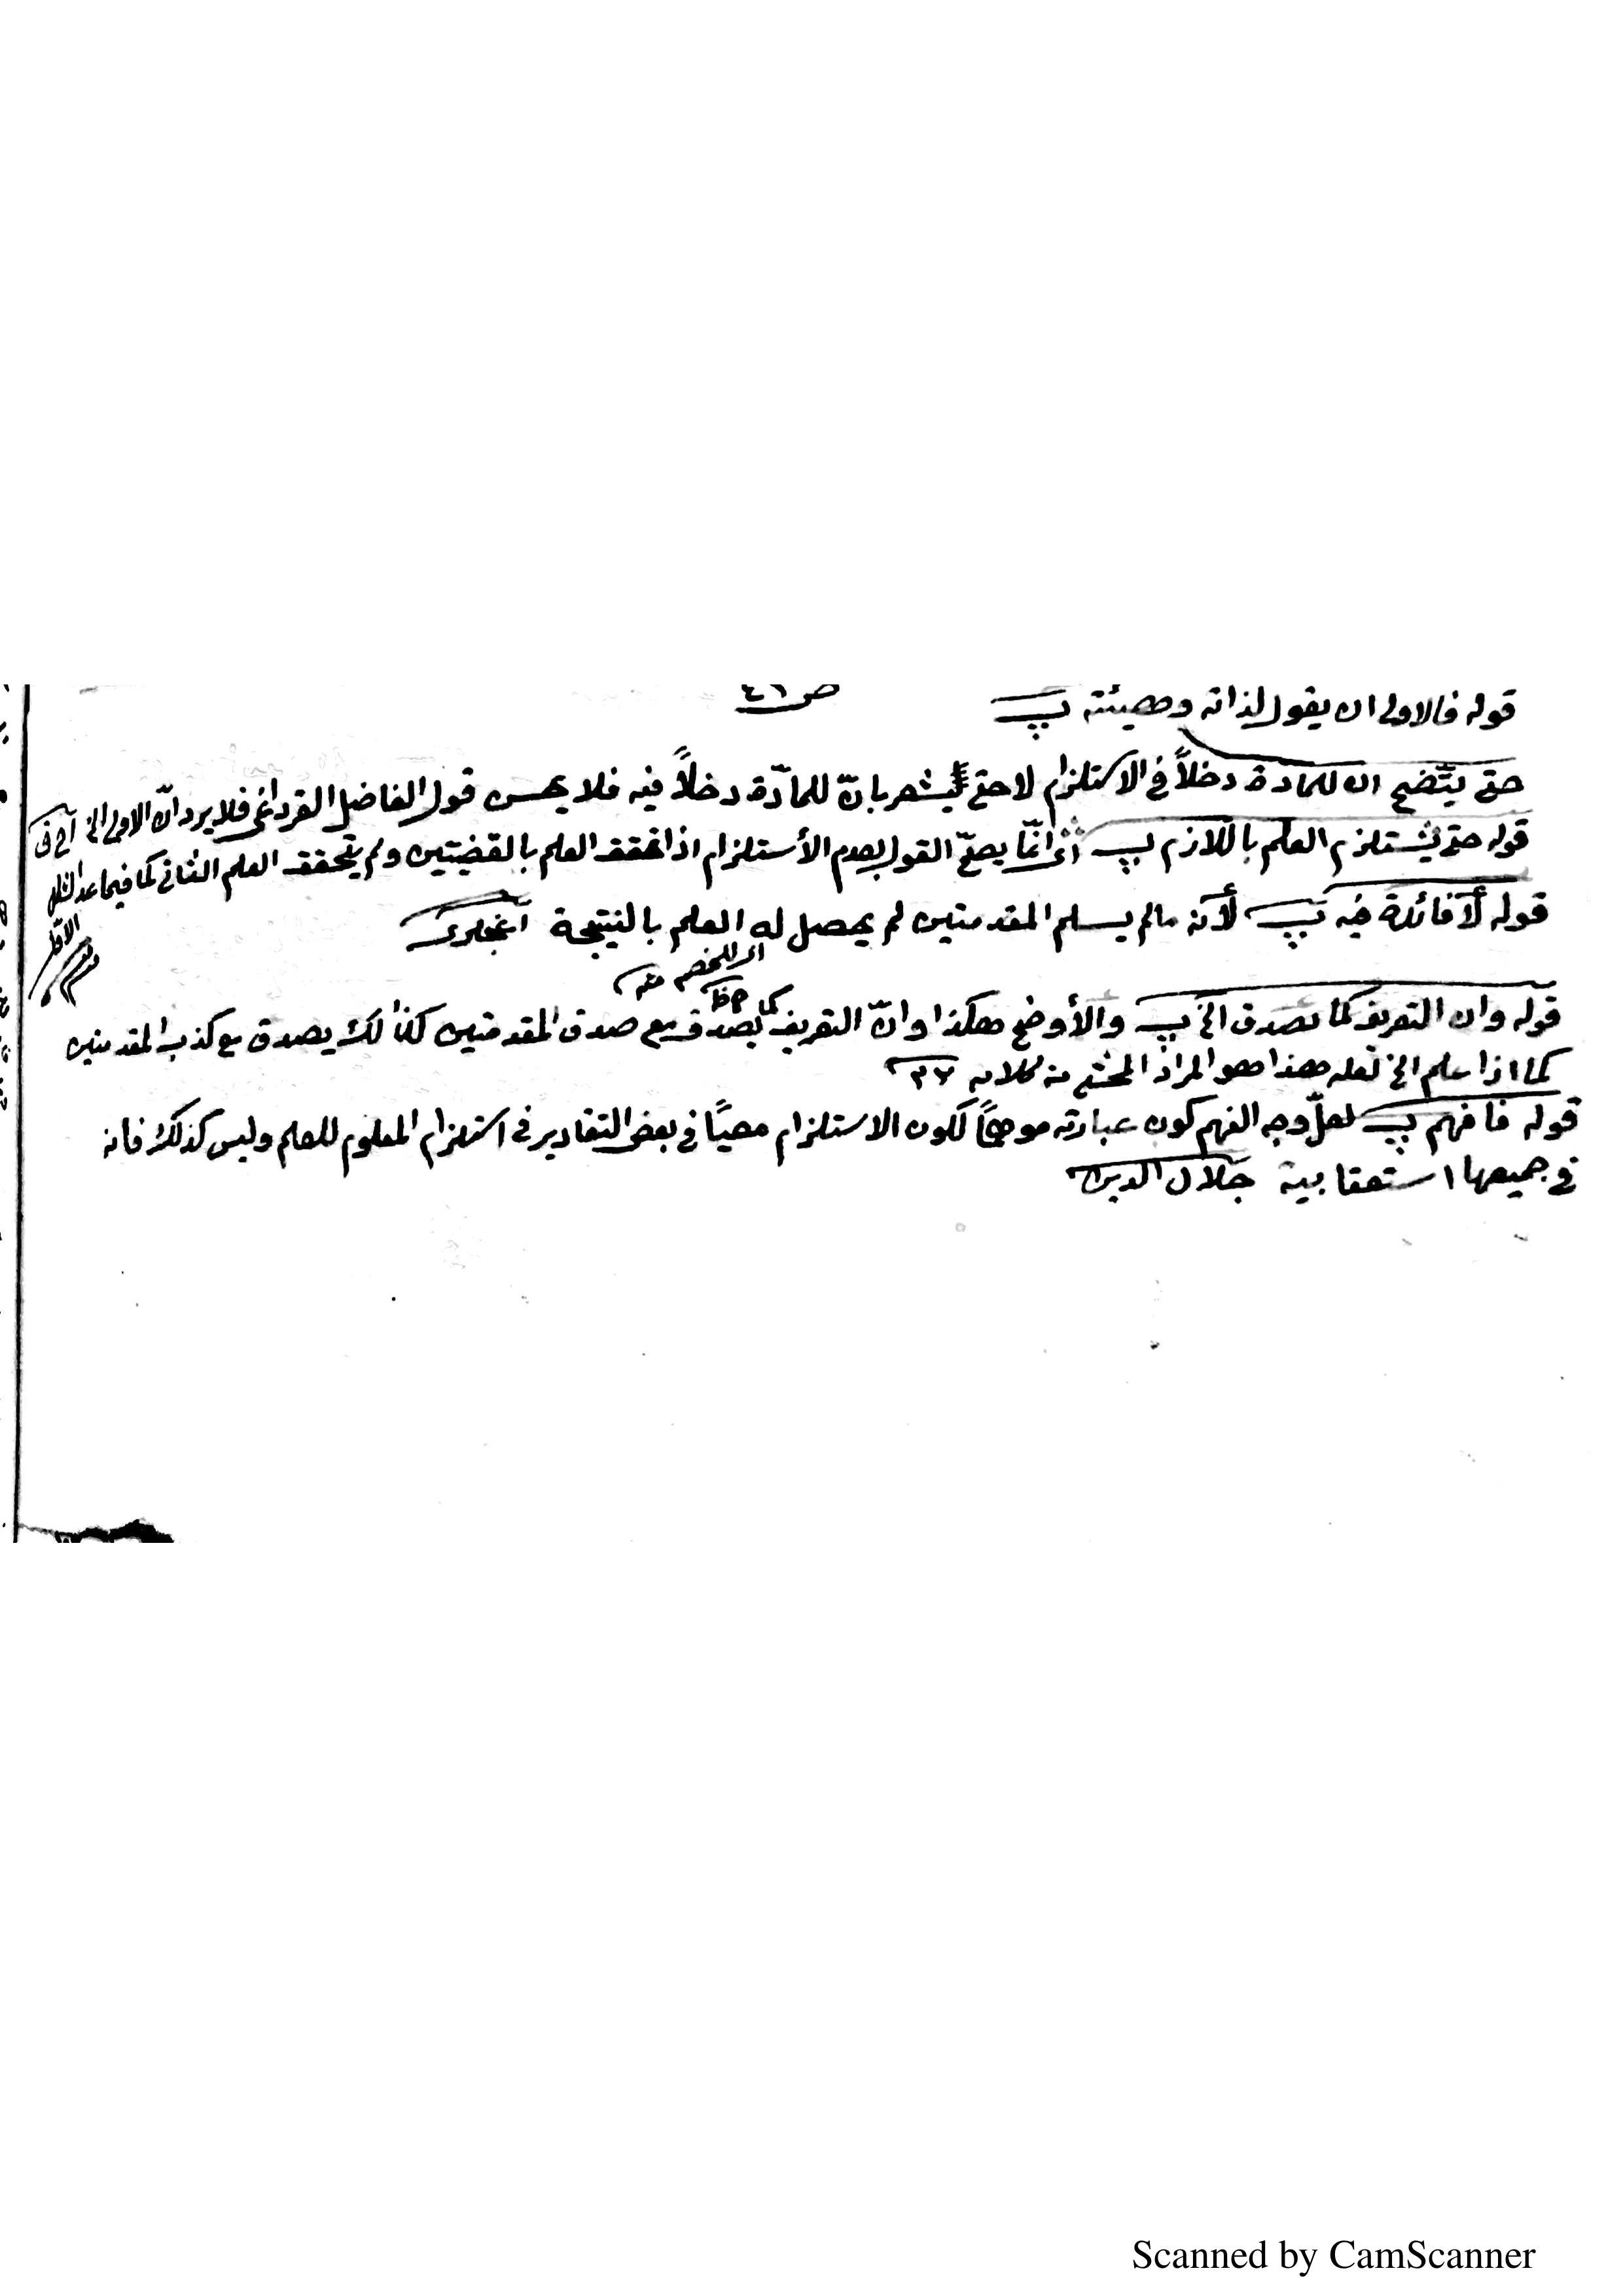 قوله فالاولى ان يقول لذاته وهيئته پ ص ٤٦
حتى يتّضح ان للمادة دخلاً في الاستلزام لا حتى يشعر بانّ للمادّة دخلاً فيه فلا يحسن قول الفاضل القرداغى فلا يرد انّ الاولى الخ
قوله حتى يستلزم العلم باللازم پ انّما يصحّ القول بعدم الأستلزام اذا تحقق العلم بالقضيتين ولم يتحقق العلم الثانى كما فيما عدا الشكل
الاوّل
قوله لا فائدة فيه پ لأنه مالم يسلم المقدمتين لم يحصل له العلم بالنتيجة
اى للخصم منه
قوله وان التعريف كما يصدق الخ پ والأوضح هكذا وانّ التعريف كما يصدق مع صدق المقدمتين كذلك يصدق مع كذب المقدمتين
كما اذا علم الخ لعله هذا هو المراد المحشى من كلامه
قوله فافهم پ لعلّ وجه الفهم كون عبارته موهماً لكون الاستلزام معيًّا في بعض التقادير في استلزام المعلوم للعلم وليس كذلك فانه
في جميعها استعقابية جلال الدين
Scanned by CamScanner